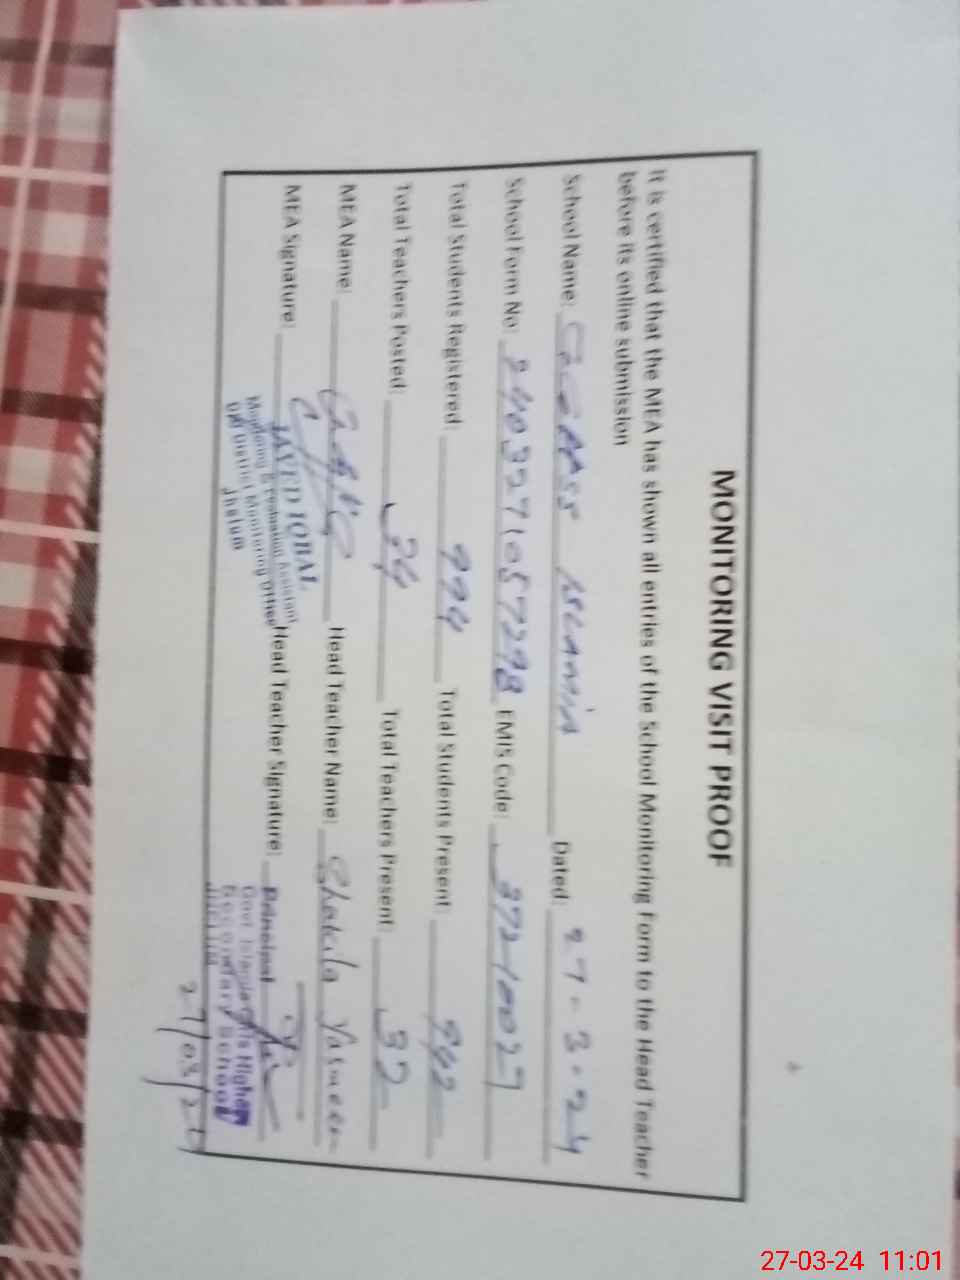 MONITORING VISIT PROOF
It is certified that the MEA has shown all entries of the School Monitoring Form to the Head Teacher
before its online submission
School Name: GGHSS ISLAMIA Dated: 27-3-24
School Form No: 2403271057298 EMIS Code: 37210027
Total Students Registered: 994 Total Students Present: 942
Total Teachers Posted: 34 Total Teachers Present: 32
MEA Name: Head Teacher Name: Shakila Yasmeen
MEA Signature: Head Teacher Signature:
JAVED IQBAL
Monitoring & Evaluation Assistant
District Monitoring Office
Jhelum
Principal
Govt. Islamia Girls Higher
Secondary School
27/03/24
27-03-24 11:01